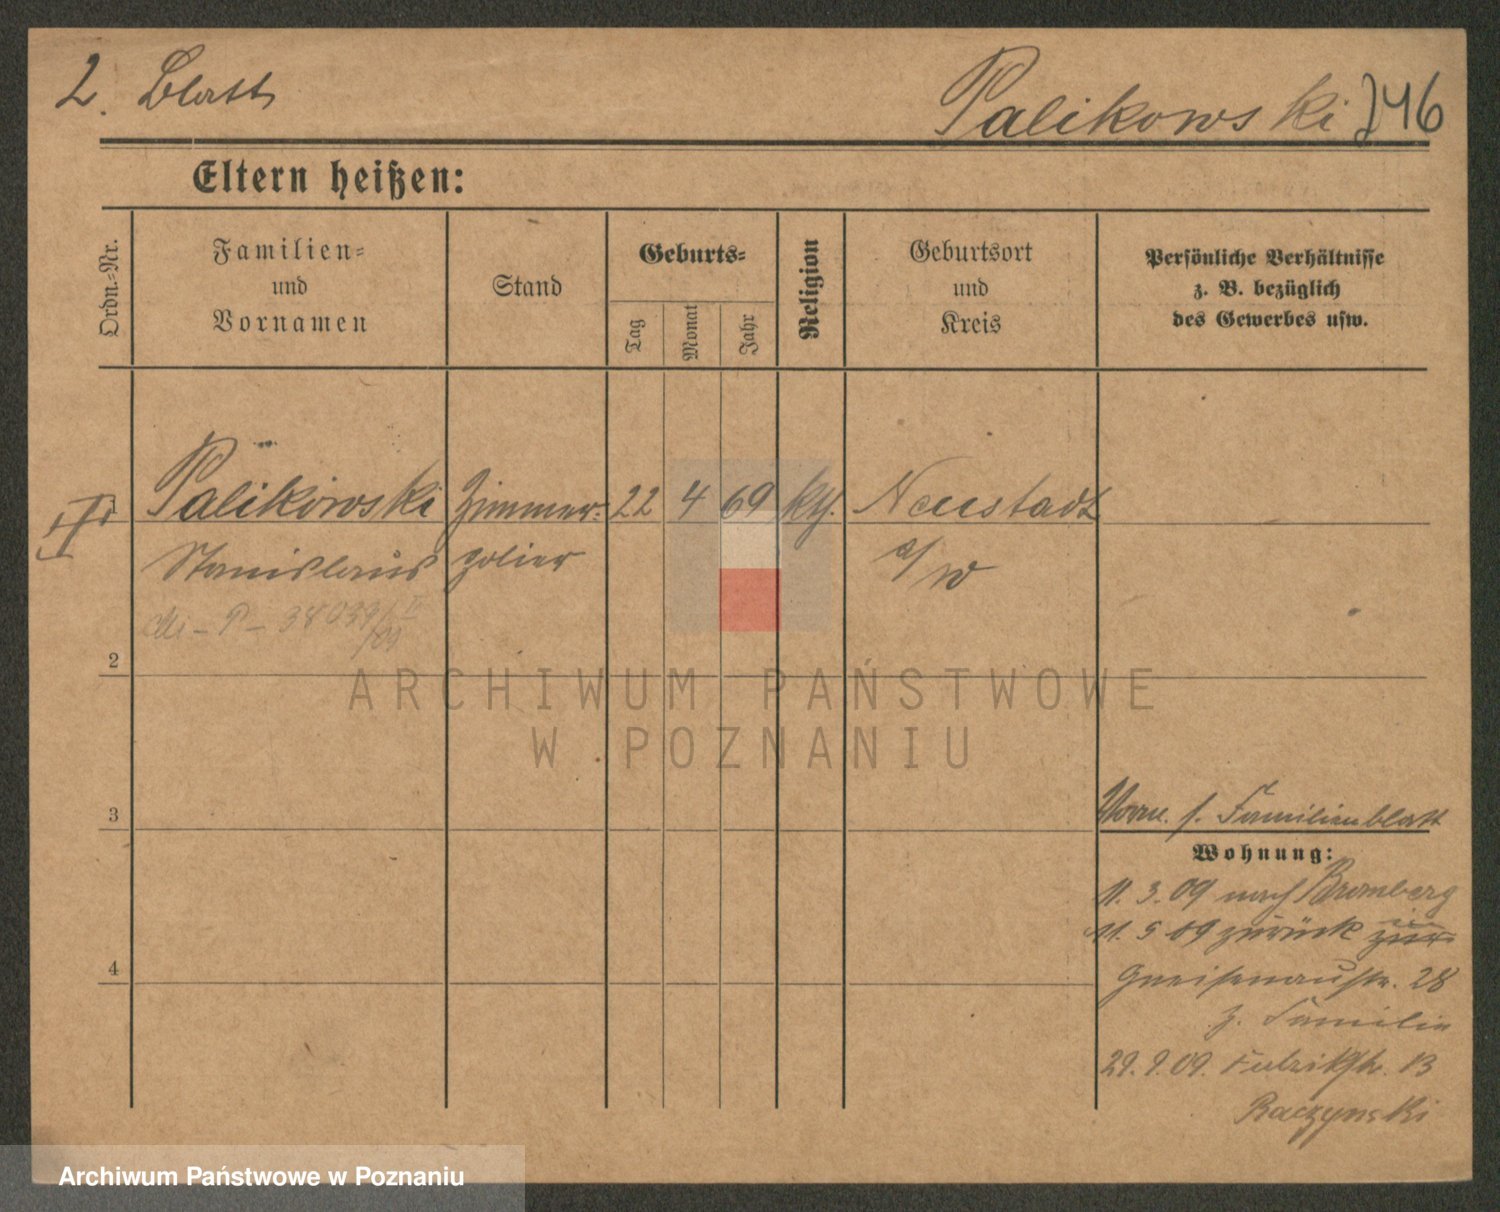 2. Blatt
Palikowski 246
Eltern heißen:
Ordn.-Nr.
Familien-
und
Vornamen
Stand
Geburts-
Tag
Monat
Jahr
Religion
Geburtsort
und
Kreis
Persönliche Verhältnisse
z. B. bezüglich
des Gewerbes usw.
1 Palikowski Zimmer- 22 4 69 kth. Neustadt
Stanislaus polier a/W
P - 38039/II
/09
2
3
4
ARCHIWUM PAŃSTWOWE
W POZNANIU
s. Familienblatt
Wohnung:
11. 3. 09 nach Bromberg
11. 5 09 zurück
Gneisenaustr. 28
z. Familie
29. 9. 09. Fabrikstr. 13
Raczynski
Archiwum Państwowe w Poznaniu